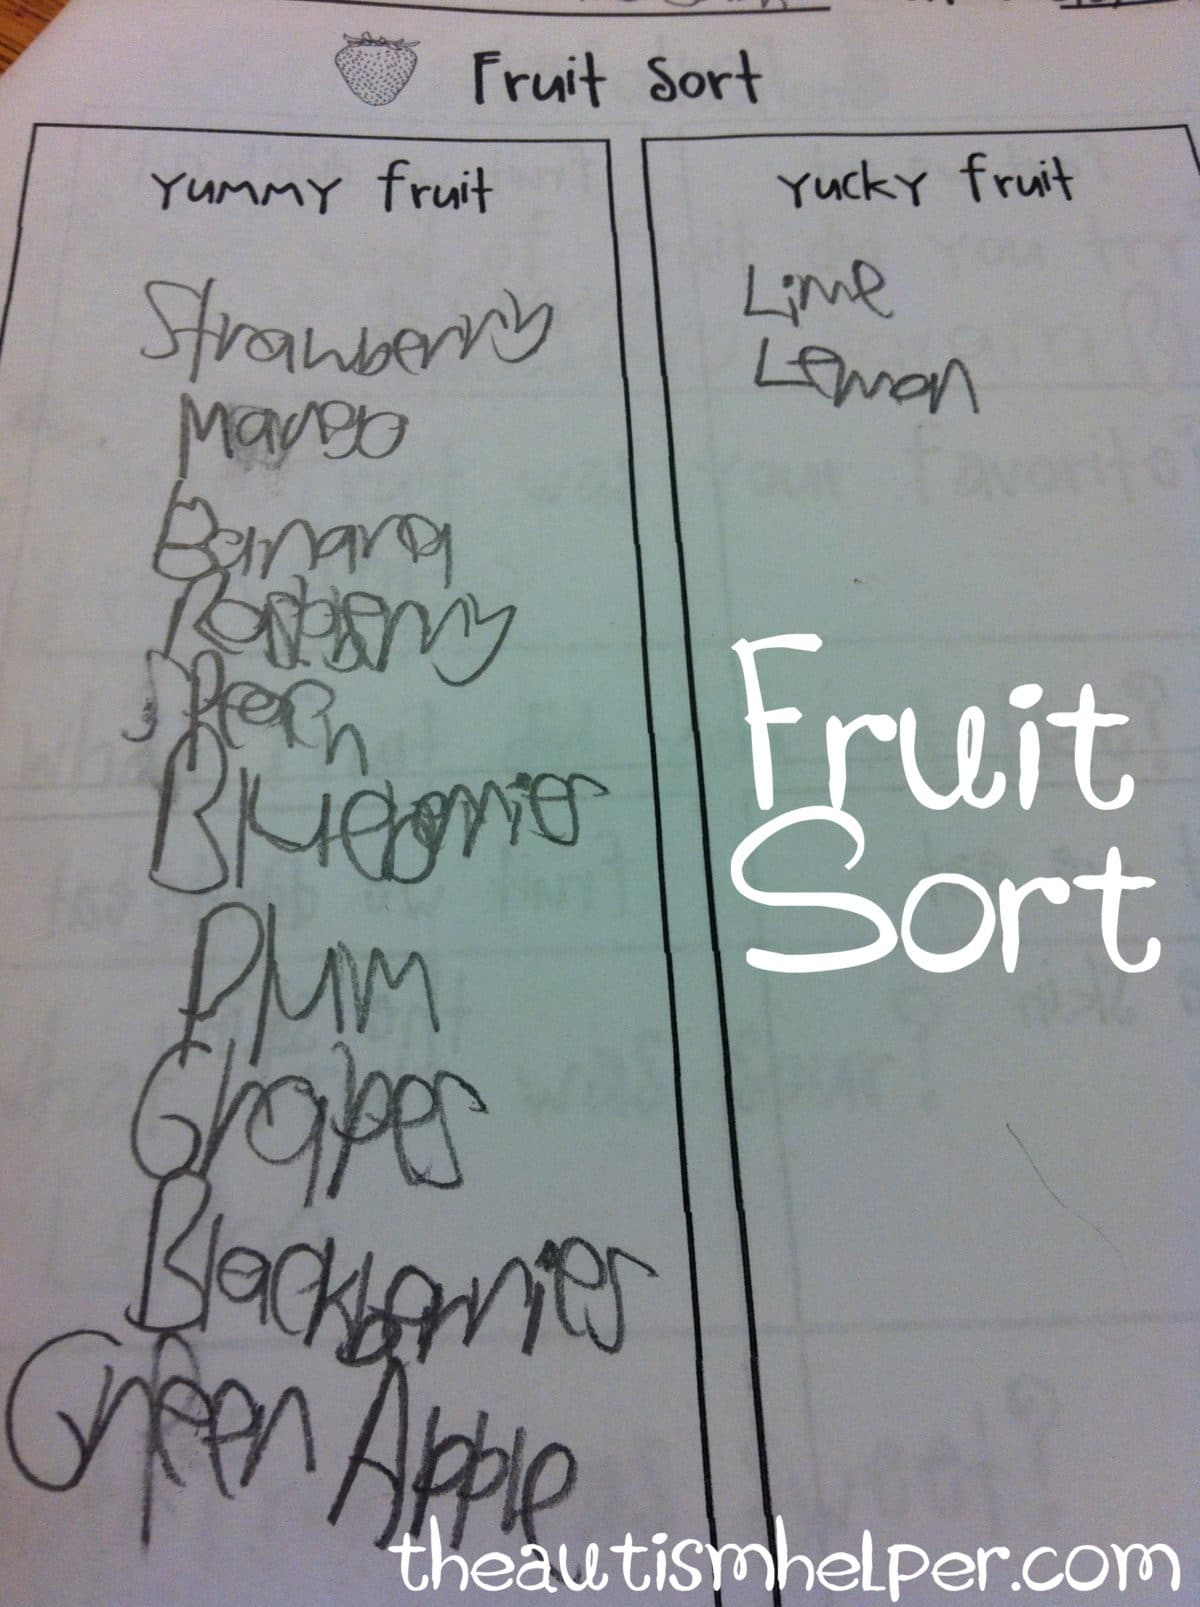 Fruit Sort
Yummy fruit
Strawberry
Mango
Banana
Rasberry
Blueberries
Plum
Grapes
Blackberries
Green Apple
Yucky fruit
Lime
Lemon
Fruit
Sort
theautismhelper.com